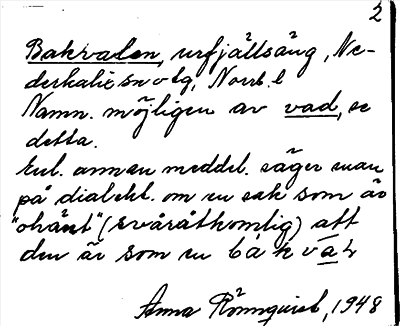 2
Bakvalen, urfjällsäng, Ne-
derkalix snvlg, Norrb. l
Namn. möjligen av vad, se
detta.
Enl. annan meddel. säger man
på dialekt. om en sak som är
"ohänt" (svåråtkomlig) att
den är som en bakvat
Anna Rönnqvist, 1948